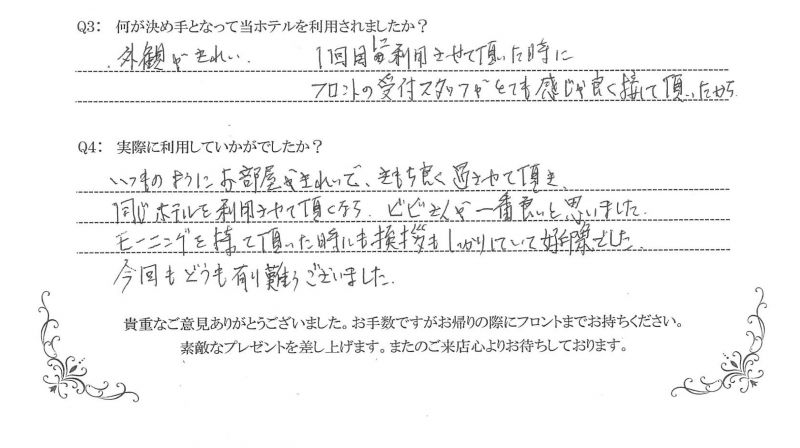 Q3: 何が決め手となって当ホテルを利用されましたか？
外観がきれい. 1回目に利用させて頂いた時に
フロントの受付スタッフがとても感じが良く接して頂いたから
Q4: 実際に利用していかがでしたか？
いつものようにお部屋がきれいで、きもち良く過させて頂き、
同じホテルを利用させて頂くなら、ビビさんが一番良いと思いました.
モーニングを持て頂った時にも挨拶もしっかりしていて好印象でした.
今回もどうも有り難うございました.
貴重なご意見ありがとうございました。お手数ですがお帰りの際にフロントまでお持ちください。
素敵なプレゼントを差し上げます。またのご来店心よりお待ちしております。